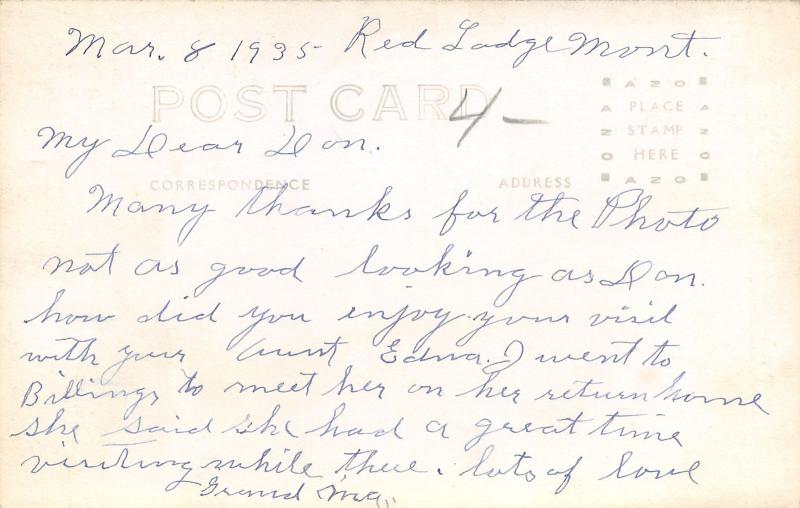 Mar. 8 1935 Red Lodge Mont.
POST CARD
4-
AZO
PLACE
STAMP
HERE
AZO
My Dear Don.
CORRESPONDENCE ADDRESS
Many thanks for the Photo
not as good looking as Don.
how did you enjoy your visit
with your Aunt Edna. I went to
Billings to meet her on her return home
she said she had a great time
visiting while there. lots of love
Grand Ma,,